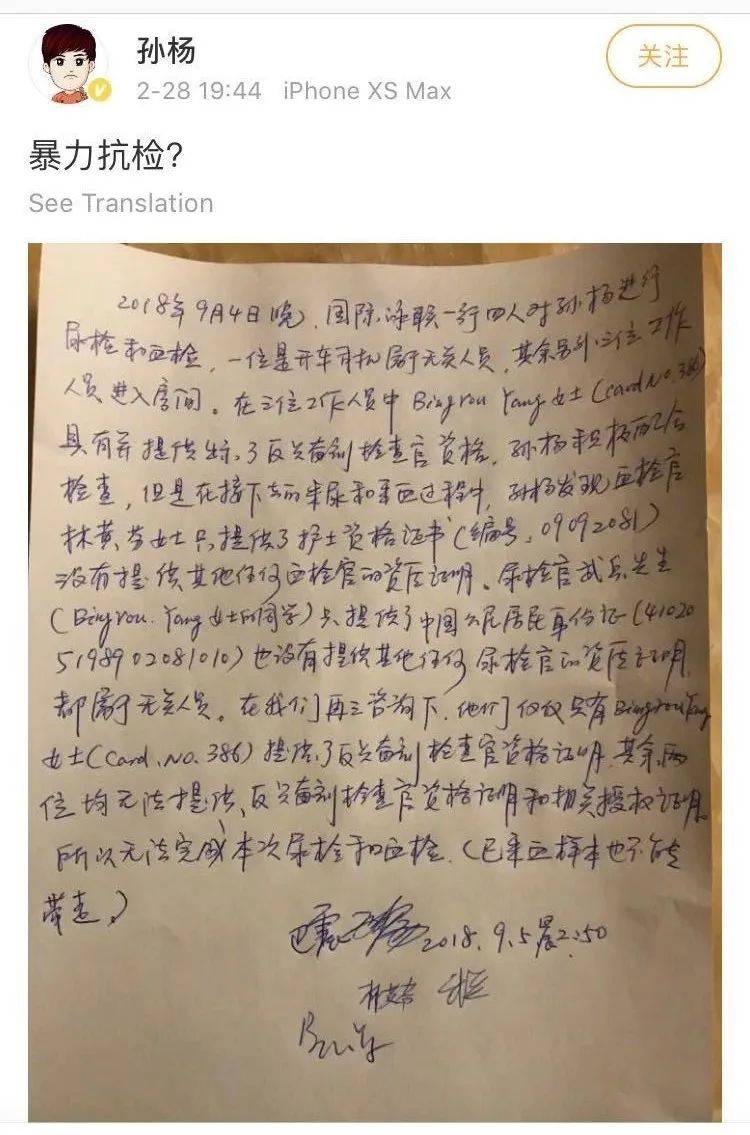 孙杨
关注
2-28 19:44 iPhone XS Max
暴力抗检?
See Translation
2018年9月4日晚,国际泳联一行四人对孙杨进行
尿检和血检,一位是开车司机属于无关人员,其余另外三位工作
人员进入房间。在三位工作人员中Bingrou Yang女士(card No.386)
具有并提供出示了反兴奋剂检查官资格,孙杨积极配合
检查,但是在接下去的采尿和采血过程中,孙杨发现血检官
林黄芬女士只提供了护士资格证书(编号:09092081)
没有提供其他任何血检官的资质证明。尿检官武兵先生
(Bingrou.Yang女士的同学)只提供了中国公民居民身份证(
)也没有提供其他任何尿检官的资质证明,
都属于无关人员。在我们再三咨询下,他们仅仅只有Bingrou Yang
女士(Card.No.386)提供了反兴奋剂检查官资格证明,其余两
位均无法提供反兴奋剂检查官资格证明和相关授权证明。
所以无法完成本次尿检和血检。(已采血样本也不能
带走。)
2018.9.5晨2:50